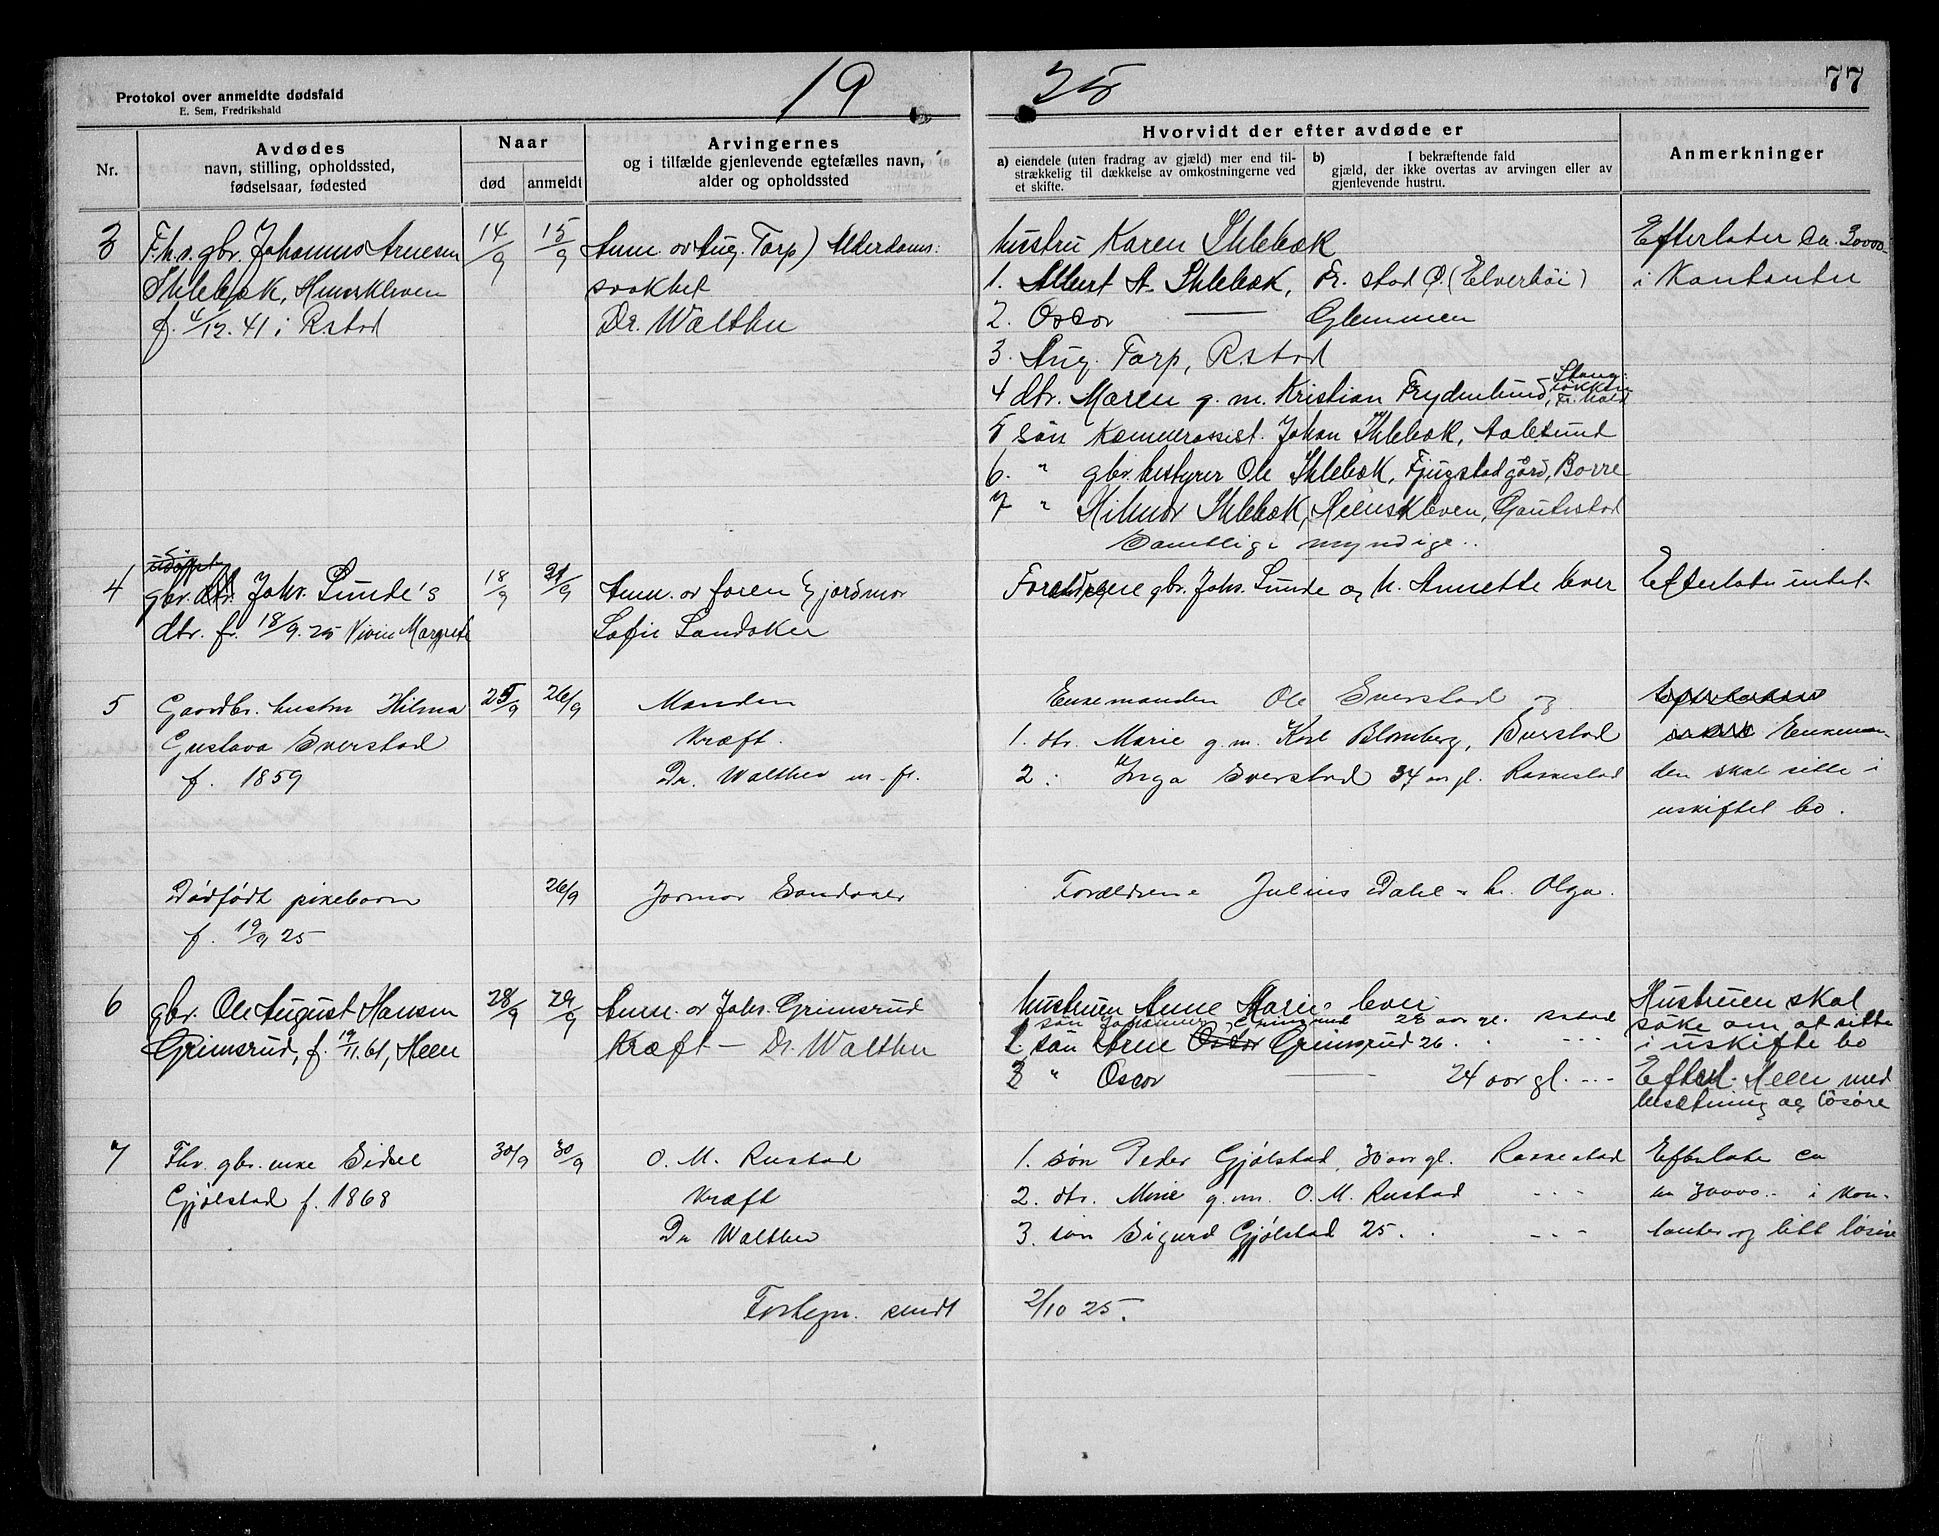 19 25
77
Protokol over anmeldte dødsfald
E. Sem, Fredrikshald
Nr.
Avdødes
navn, stilling, opholdssted,
fødselsaar, fødested
Naar
død
anmeldt
Arvingernes
og i tilfælde gjenlevende egtefælles navn,
alder og opholdssted
Hvorvidt der efter avdøde er
a) eiendele (uten fradrag av gjæld) mer end til-
strækkelig til dækkelse av omkostningerne ved
et skifte.
b) I bekræftende fald
gjæld, der ikke overtas av arvingen eller av
gjenlevende hustru.
Anmerkninger
3 F.h.v. gbr. Johannes Arnesen 14/9 15/9 Anm. av Aug. Torp) Alderdoms:
Ihlebæk, Heenskleven svakhet
f. 4/12. 41 i R.stad Dr. Walther
hustru Karen Ihlebæk
1. Albert A. Ihlebæk, Fr. stad Ø. (Elverhöi)
2. Oscar — Glemmen
3. Aug. Torp, R.stad
4 dtr. Maren g. m. Kristian Frydenlund, Stang-
løkken
Fr.hald
5 søn Kæmnerassist. Johan Ihlebæk, Aalesund
6. " gbr. bestyrer Ole Ihlebæk, Fjugstad gård, Borre
7 " Hilmar Ihlebæk, Heenskleven, Gautestad
Samtlige myndige..
Efterlater ca. 30000.-
i Kontanter
4 gbr. Johs. Lunde's 18/9 21/9 Anm. av faren Gjordmor
dtr. f. 18/9. 25 Vivin Margrete Sofie Sandaker
Forældrene gbr. Johs. Lunde og h. Annette lever
Efterlater intet.
5 Gaardbr. hustru Hilma 25/9 26/9 Manden
Gustava Sverstad Kræft.
f. 1859 Dr. Walther m. fl.
Enkemanden Ole Sverstad og
1. dtr. Marie g. m. Karl Blomberg, Sverstad
2 : Inga Sverstad 34 aar gl. Rakkestad
Enkeman-
den skal sitte i
uskiftet bo.
Dødfødt pikebarn 26/9 Jormor Sandaker
f. 19/9 25
Forældrene Julius Dahl o h. Olga.
6 gbr. Ole August Hansen 28/9 29/9 Anm. av Johs. Grimsrud
Grimsrud, f. 19/11. 61, Heen Kræft — Dr. Walther
hustruen Anne Marie lever
1 søn Johannes Grimsrud 28 aar gl. R.stad
2 søn Arne Oscar Grimsrud 26. " - - -
3 " Oscar — 24 aar gl. - - -
Hustruen skal
søke om at sitte
i uskifte bo
Efterl. Heen med
besætning og løsøre
7 Fhv. gbr. enke Sidsel 30/9 30/9 O. M. Rustad
Gjølstad f. 1868 Kræft
Dr Walther
1. søn Peder Gjølstad, 30 aar gl. Rakkestad
2. dtr. Mine g. m. O. M. Rustad - - -
3. søn Sigurd Gjølstad 25. . - - -
Efterlater ca
kr 30000.. i kon-
tanter og litt løsøre
Fortegn. sendt 2/10 25.